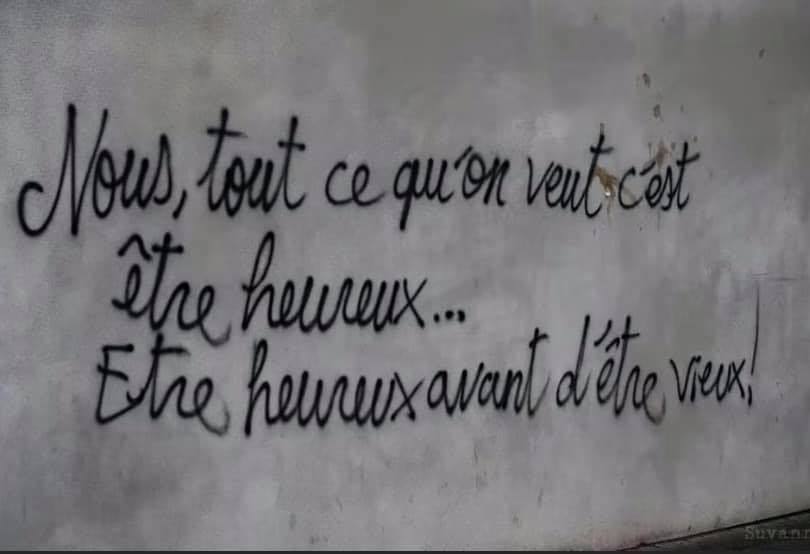 Nous, tout ce qu'on veut c'est
être heureux...
Etre heureux avant d'être vieux!